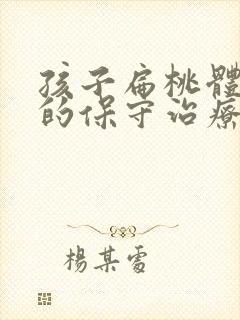 孩子扁桃體
的保守治療
楊某雷